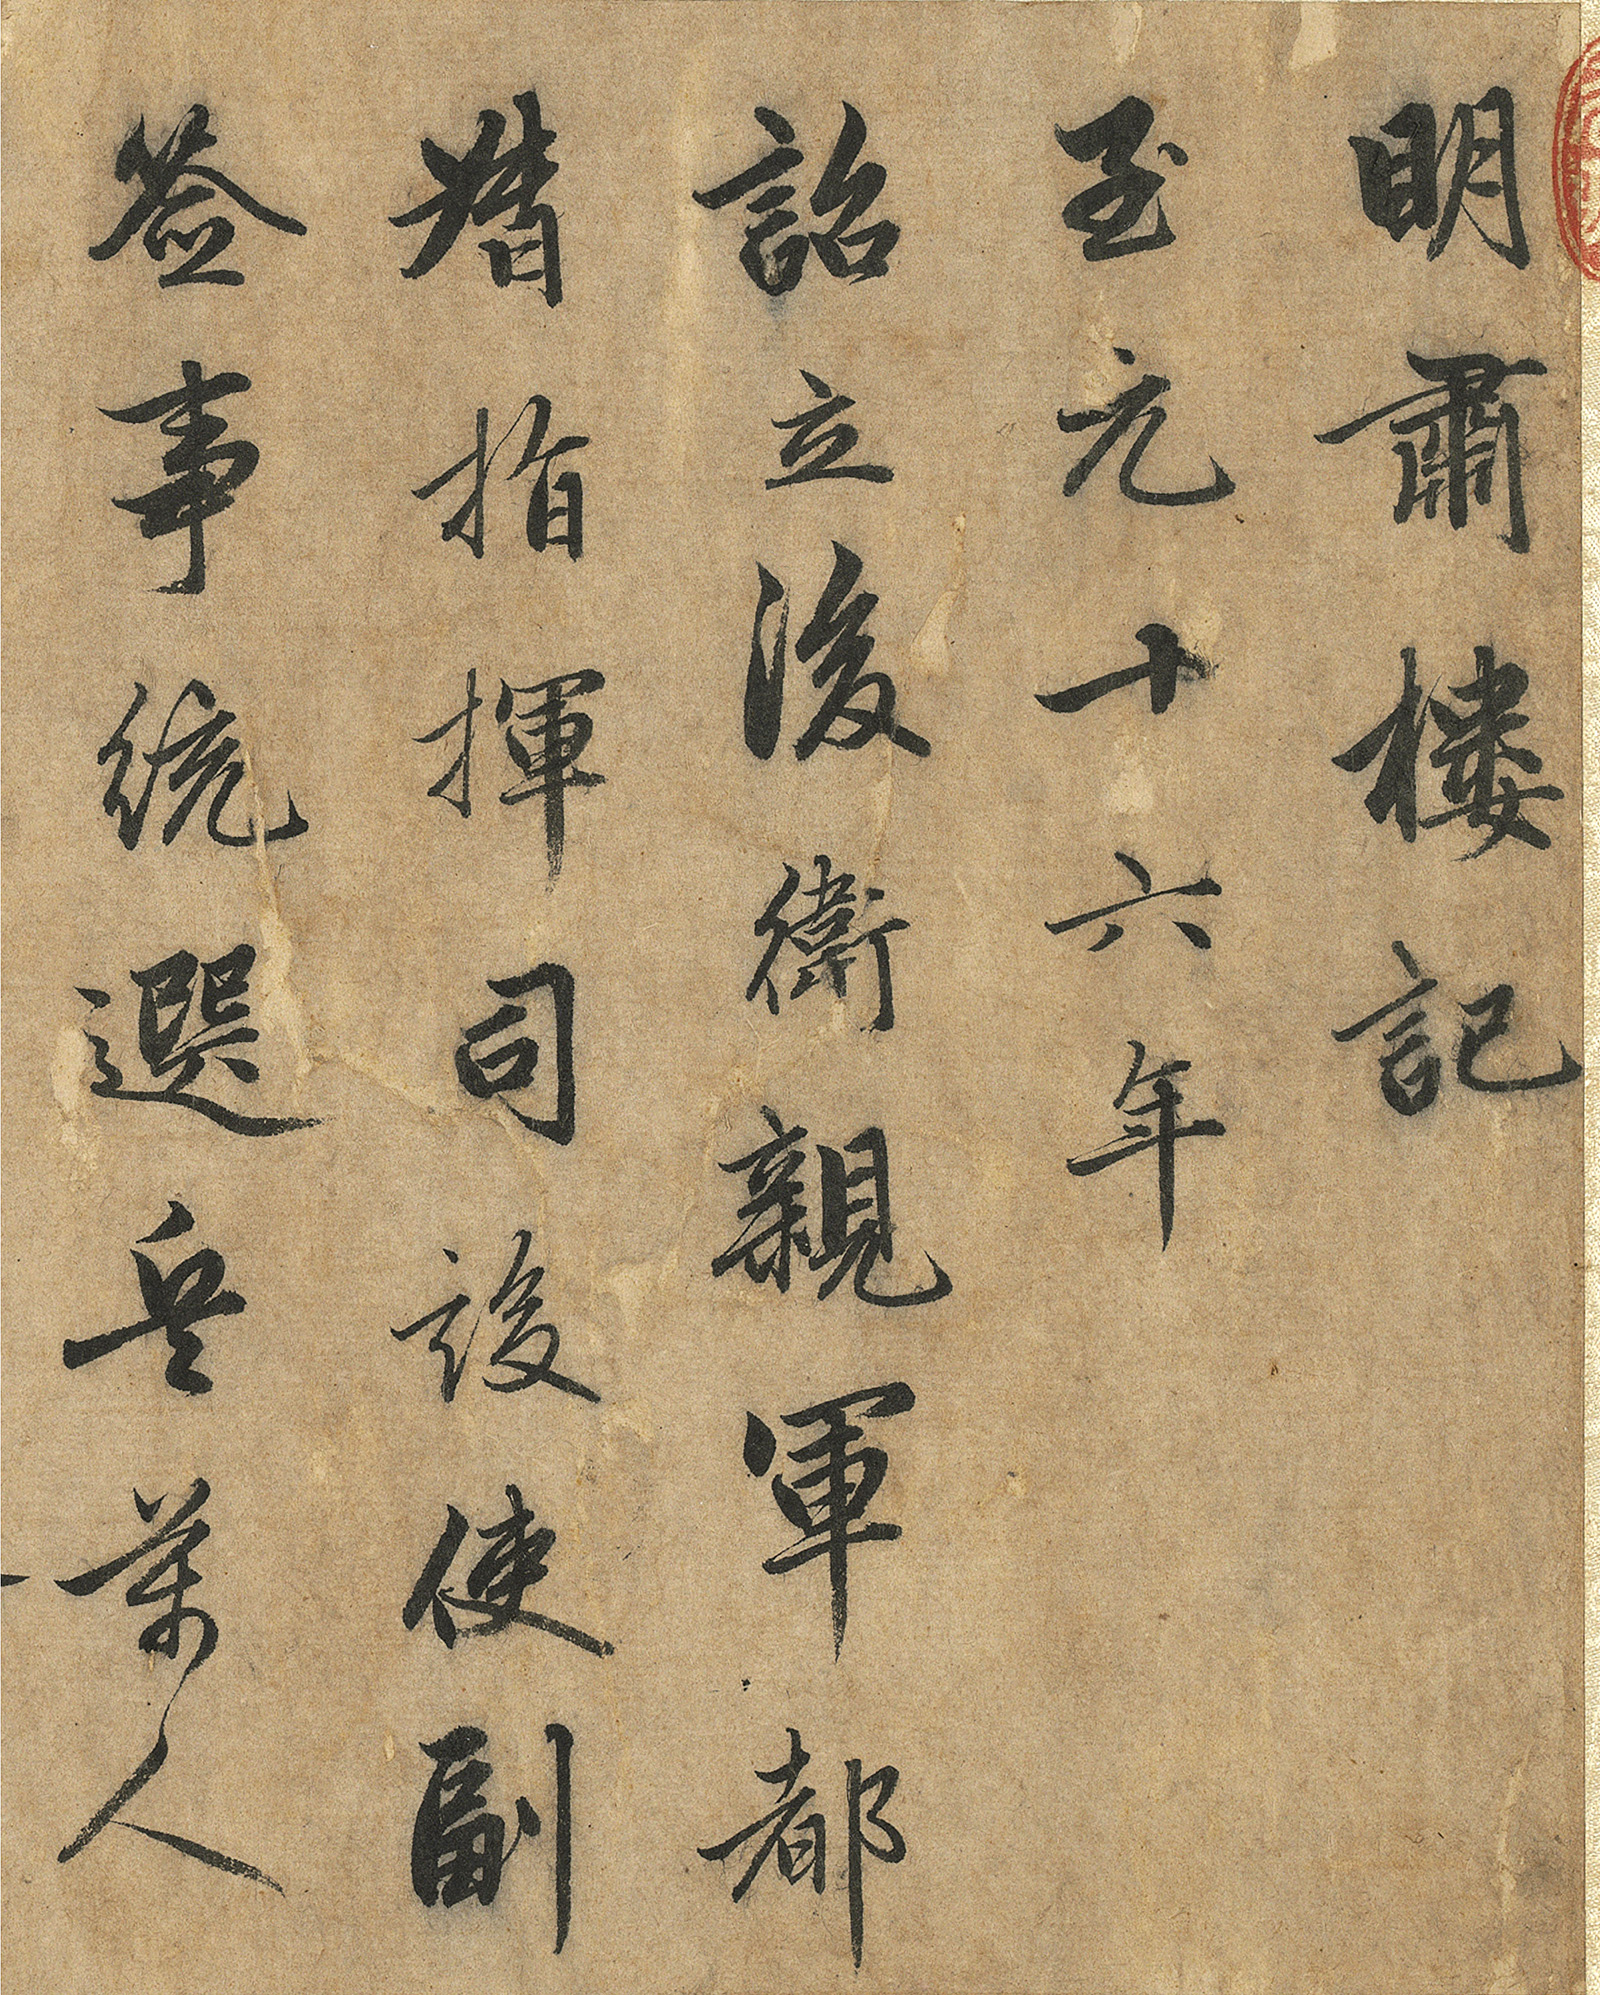 明肅樓記
至元十六年
詔立後衛親軍都
指揮司設使副
簽事統選兵萬人